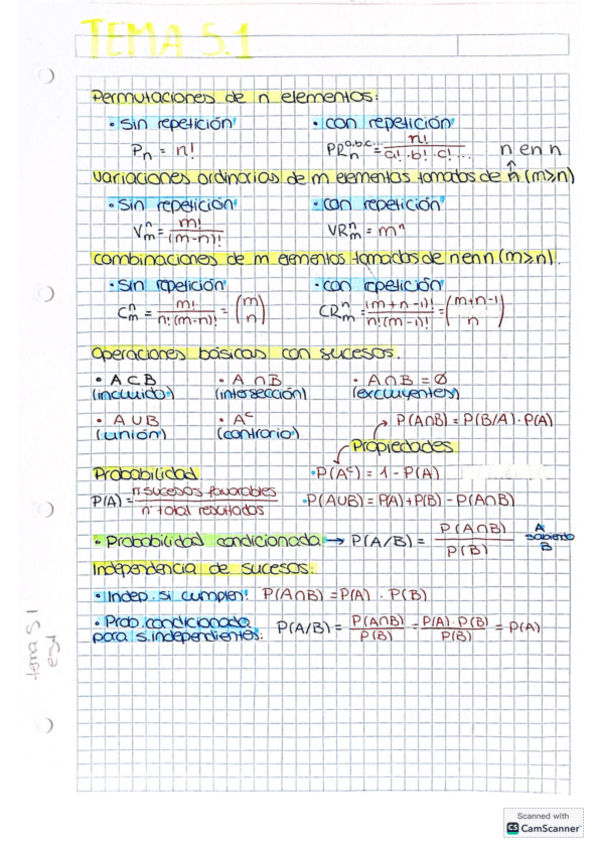 TEMA 5.1
Permutaciones de n elementos:
• sin repetición • con repetición
Pₙ = n! PRₙᵃ·ᵇ·ᶜ··· = n! / a!·b!·c!... n en n
variaciones ordinarias de m elementos tomados de n (m⩾n)
• sin repetición • con repetición
Vₘⁿ = m! / (m-n)! VRₘⁿ = mⁿ
combinaciones de m elementos tomados de n en n (m⩾n).
• sin repetición • con repetición
Cₘⁿ = m! / n!(m-n)! = (m n) CRₘⁿ = (m+n-1)! / n!(m-1)! = (m+n-1 n)
Operaciones básicas con sucesos.
• A ⊂ B • A ∩ B • A ∩ B = Ø
(incluido) (intersección) (excluyentes)
• A ∪ B • Aᶜ → P(A∩B) = P(B/A)·P(A)
(unión) (contrario) Propiedades
Probabilidad. • P(Aᶜ) = 1 - P(A)
P(A) = nº sucesos favorables / nº total resultados • P(A∪B) = P(A)+P(B) - P(A∩B)
• Probabilidad condicionada → P(A/B) = P(A∩B) / P(B) A sabiendo B
Independencia de sucesos:
• Indep. si cumplen: P(A∩B) = P(A) · P(B)
• Prob. condicionada
para s. independientes: P(A/B) = P(A∩B) / P(B) = P(A)·P(B) / P(B) = P(A)
tema 5.1
Scanned with
CS CamScanner